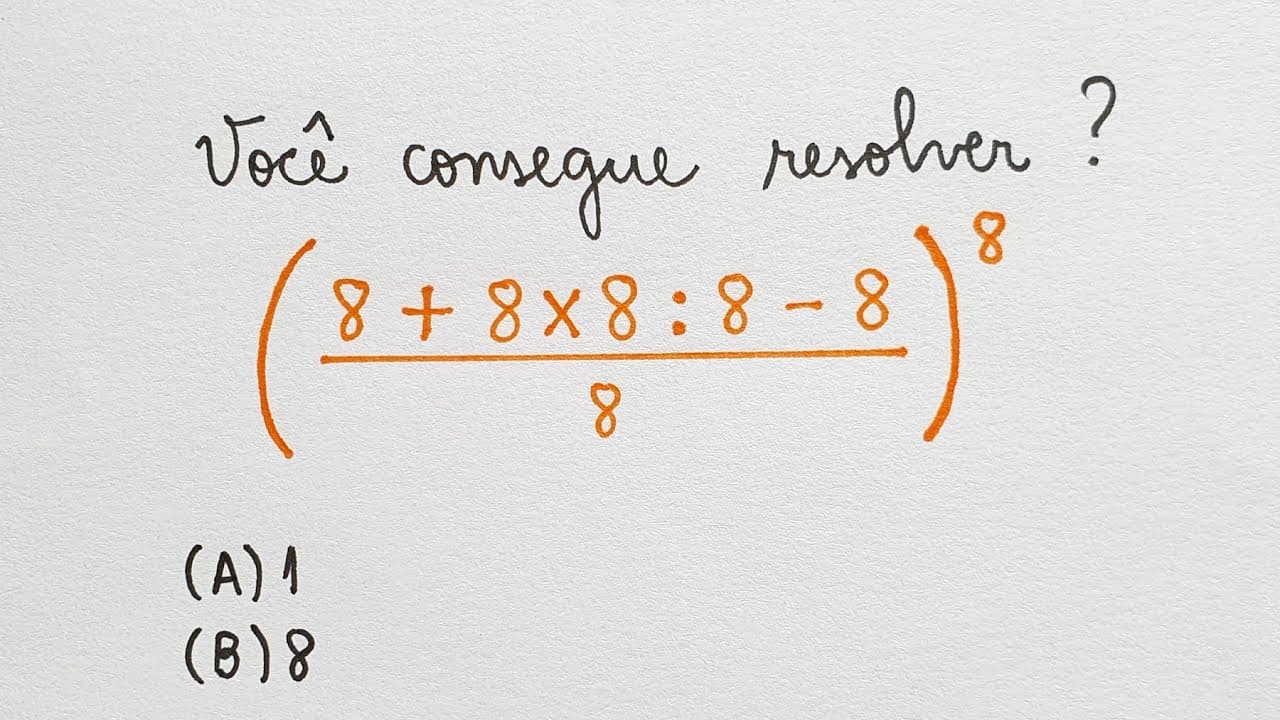 Você consegue resolver ?
( 8 + 8 x 8 : 8 - 8 ) 8
8
(A) 1
(B) 8